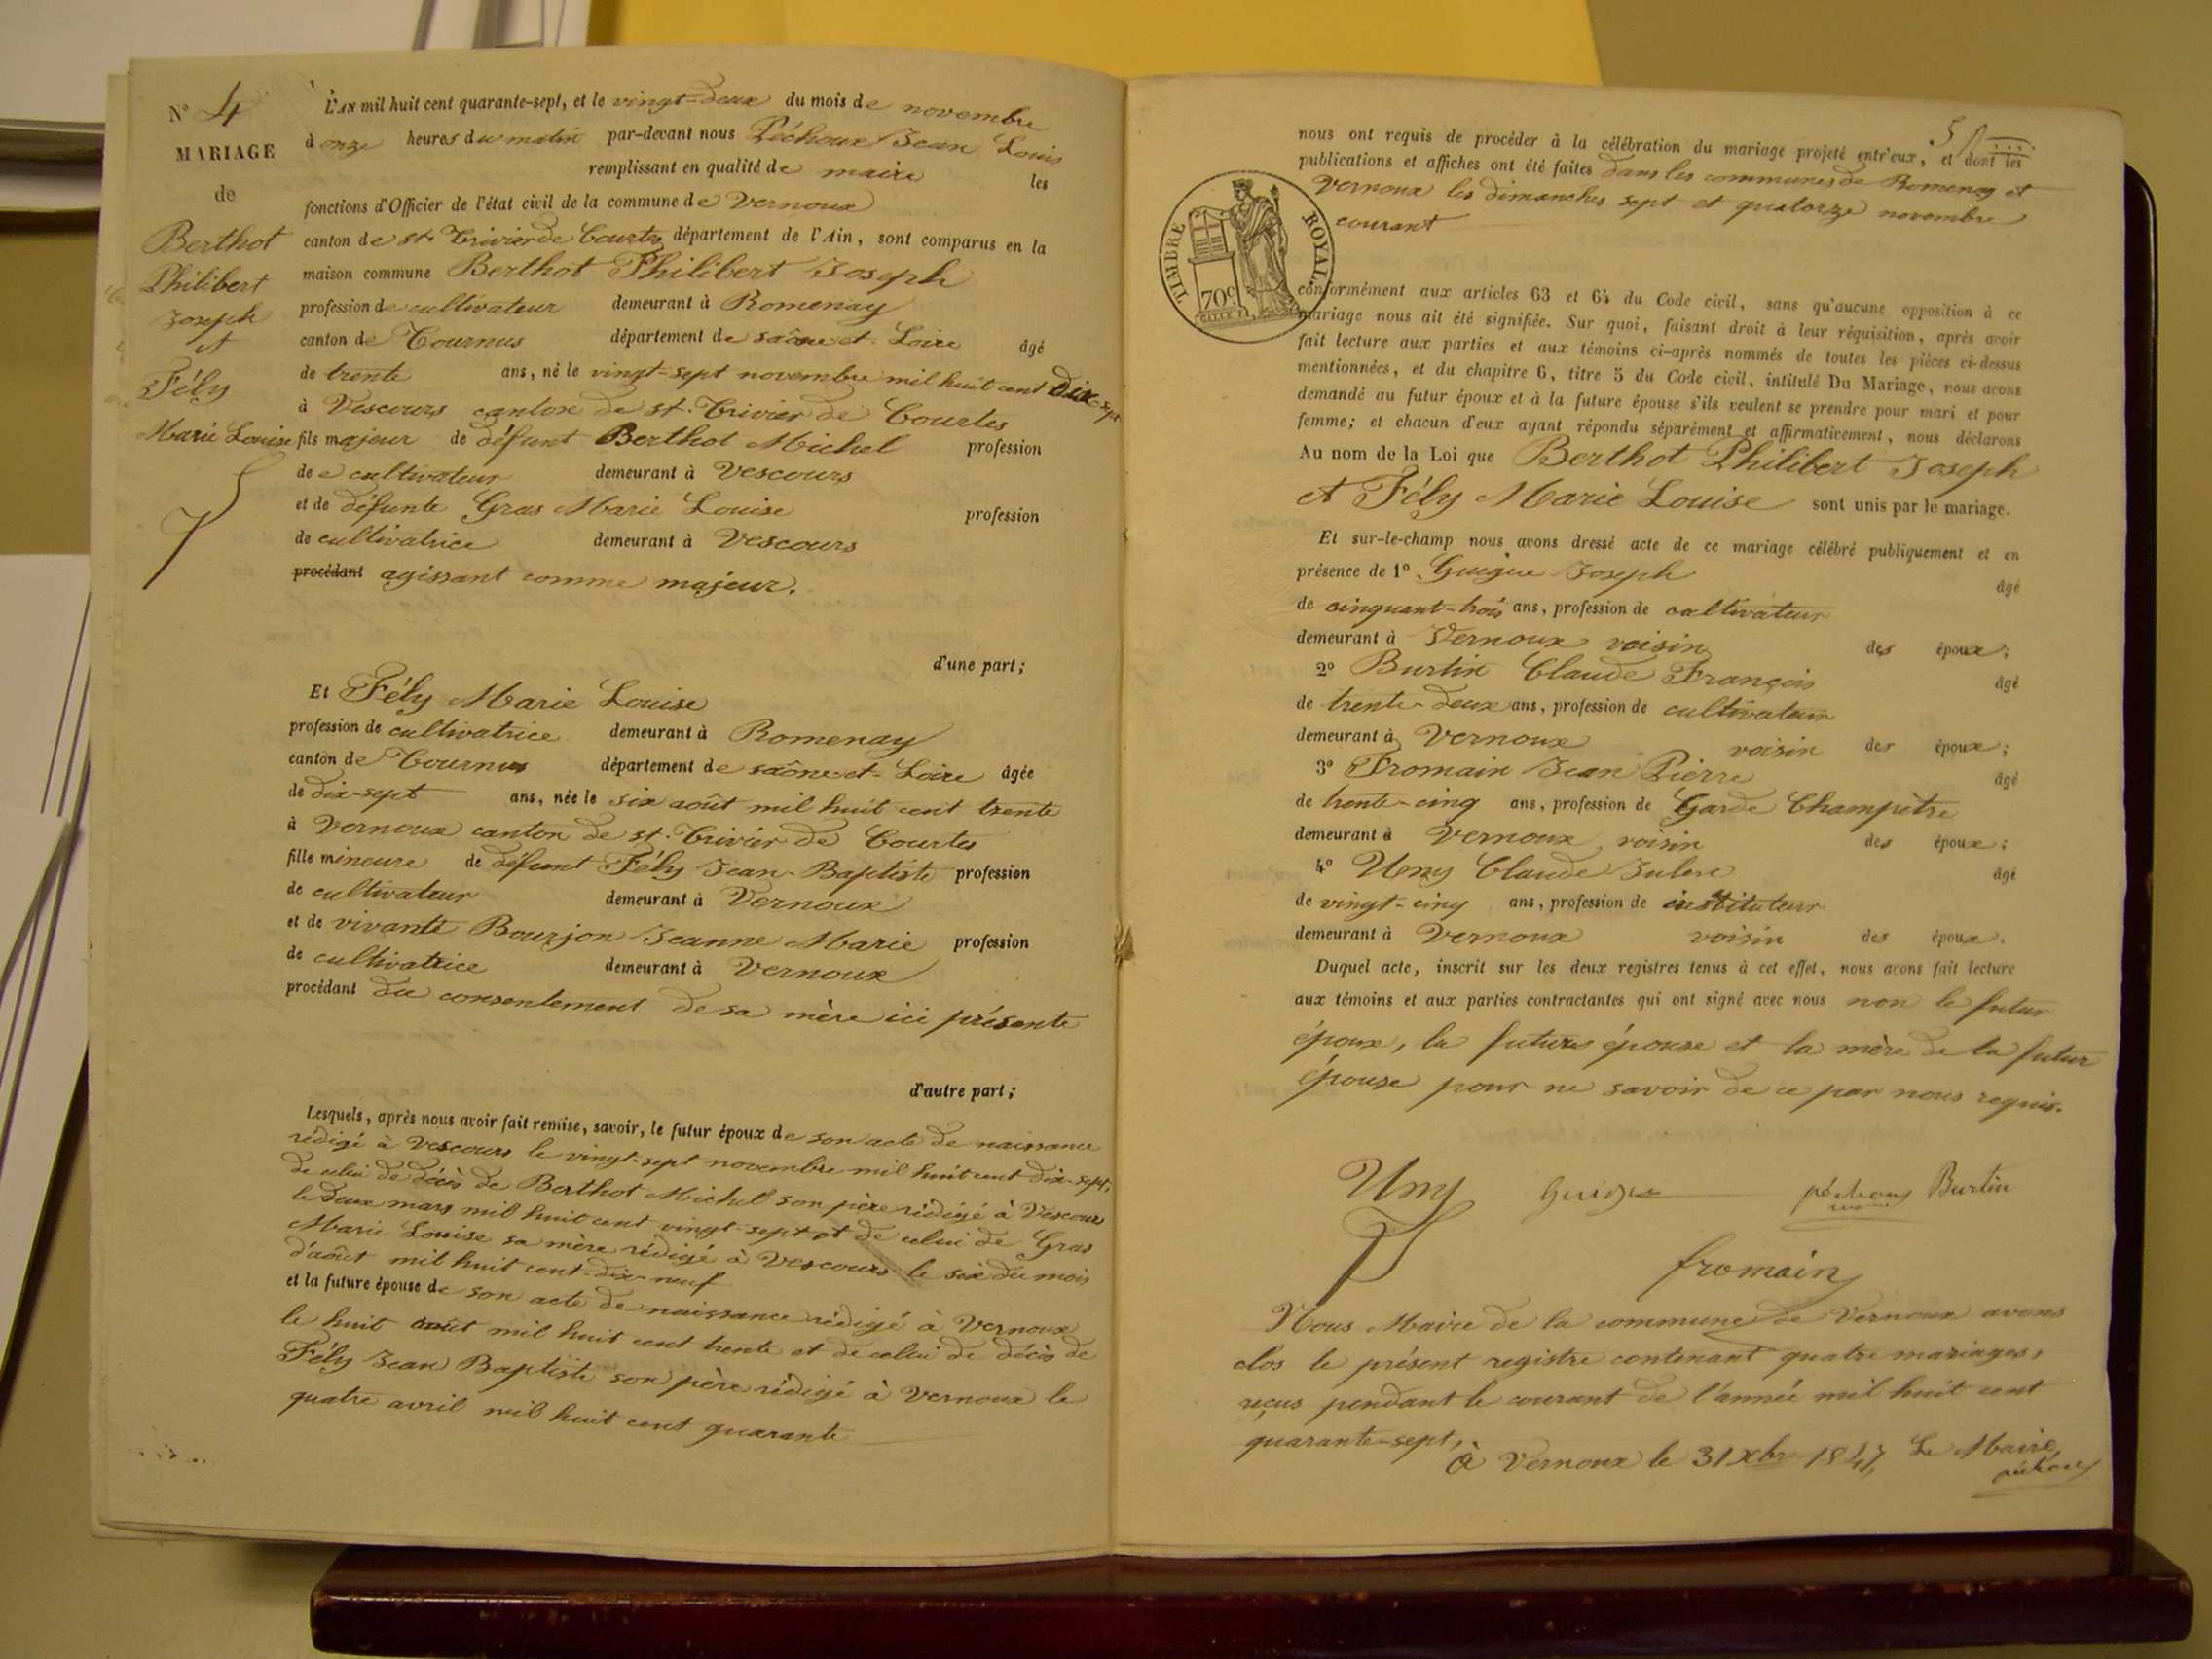 N° 4
MARIAGE
de
Berthot
Philibert
Joseph
et
Fély
Marie Louise
L'An mil huit cent quarante-sept, et le vingt-deux du mois de novembre
à onze heures du matin par-devant nous Péchoux Jean Louis
remplissant en qualité de maire les
fonctions d'Officier de l'état civil de la commune de Vernoux
canton de st. Trivier de Courtes département de l'Ain, sont comparus en la
maison commune Berthot Philibert Joseph
profession de cultivateur demeurant à Romenay
canton de Tournus département de saône et Loire âgé
de trente ans, né le vingt-sept novembre mil huit cent dix-sept
à Vescours canton de st. Trivier de Courtes
fils majeur de défunt Berthot Michel profession
de cultivateur demeurant à Vescours
et de défunte Gras Marie Louise profession
de cultivatrice demeurant à Vescours
procédant agissant comme majeur.
d'une part;
Et Fély Marie Louise
profession de cultivatrice demeurant à Romenay
canton de Tournus département de saône-et-Loire âgée
de dix-sept ans, née le six août mil huit cent trente
à Vernoux canton de st. Trivier de Courtes
fille mineure de défunt Fély Jean-Baptiste profession
de cultivateur demeurant à Vernoux
et de vivante Bourjon Jeanne Marie profession
de cultivatrice demeurant à Vernoux
procédant du consentement de sa mère ici présente
d'autre part;
Lesquels, après nous avoir fait remise, savoir, le futur époux de son acte de naissance
rédigé à Vescours le vingt-sept novembre mil huit cent dix-sept,
de celui de décès de Berthot Michel son père rédigé à Vescours
le deux mars mil huit cent vingt-sept et de celui de Gras
Marie Louise sa mère rédigé à Vescours le six du mois
d'août mil huit cent-dix-neuf
et la future épouse de son acte de naissance rédigé à Vernoux
le huit août mil huit cent trente et de celui de décès de
Fély Jean Baptiste son père rédigé à Vernoux le
quatre avril mil huit cent quarante
nous ont requis de procéder à la célébration du mariage projeté entr'eux, et dont les
publications et affiches ont été faites dans les communes de Romenay et
Vernoux les dimanches sept et quatorze novembre
courant
TIMBRE ROYAL
70c
conformément aux articles 63 et 64 du Code civil, sans qu'aucune opposition à ce
mariage nous ait été signifiée. Sur quoi, faisant droit à leur réquisition, après avoir
fait lecture aux parties et aux témoins ci-après nommés de toutes les pièces ci-dessus
mentionnées, et du chapitre 6, titre 5 du Code civil, intitulé Du Mariage, nous avons
demandé au futur époux et à la future épouse s'ils veulent se prendre pour mari et pour
femme; et chacun d'eux ayant répondu séparément et affirmativement, nous déclarons
Au nom de la Loi que Berthot Philibert Joseph
et Fély Marie Louise sont unis par le mariage.
Et sur-le-champ nous avons dressé acte de ce mariage célébré publiquement et en
présence de 1° Guigue Joseph âgé
de cinquant-trois ans, profession de cultivateur
demeurant à Vernoux voisin des époux;
2° Burtin Claude François âgé
de trente-deux ans, profession de cultivateur
demeurant à Vernoux voisin des époux;
3° Fromain Jean Pierre âgé
de trente-cinq ans, profession de Garde Champêtre
demeurant à Vernoux voisin des époux;
4° Uny Claude âgé
de vingt-cinq ans, profession de instituteur
demeurant à Vernoux voisin des époux.
Duquel acte, inscrit sur les deux registres tenus à cet effet, nous avons fait lecture
aux témoins et aux parties contractantes qui ont signé avec nous non le futur
époux, la future épouse et la mère de la futur
épouse pour ne savoir de ce par nous requis.
Uny Guigue péchoux Burtin
fromain
Nous Maire de la commune de Vernoux avons
clos le présent registre contenant quatre mariages,
reçus pendant le courant de l'année mil huit cent
quarante-sept,
à Vernoux le 31 xbre 1847 Le Maire
péchoux